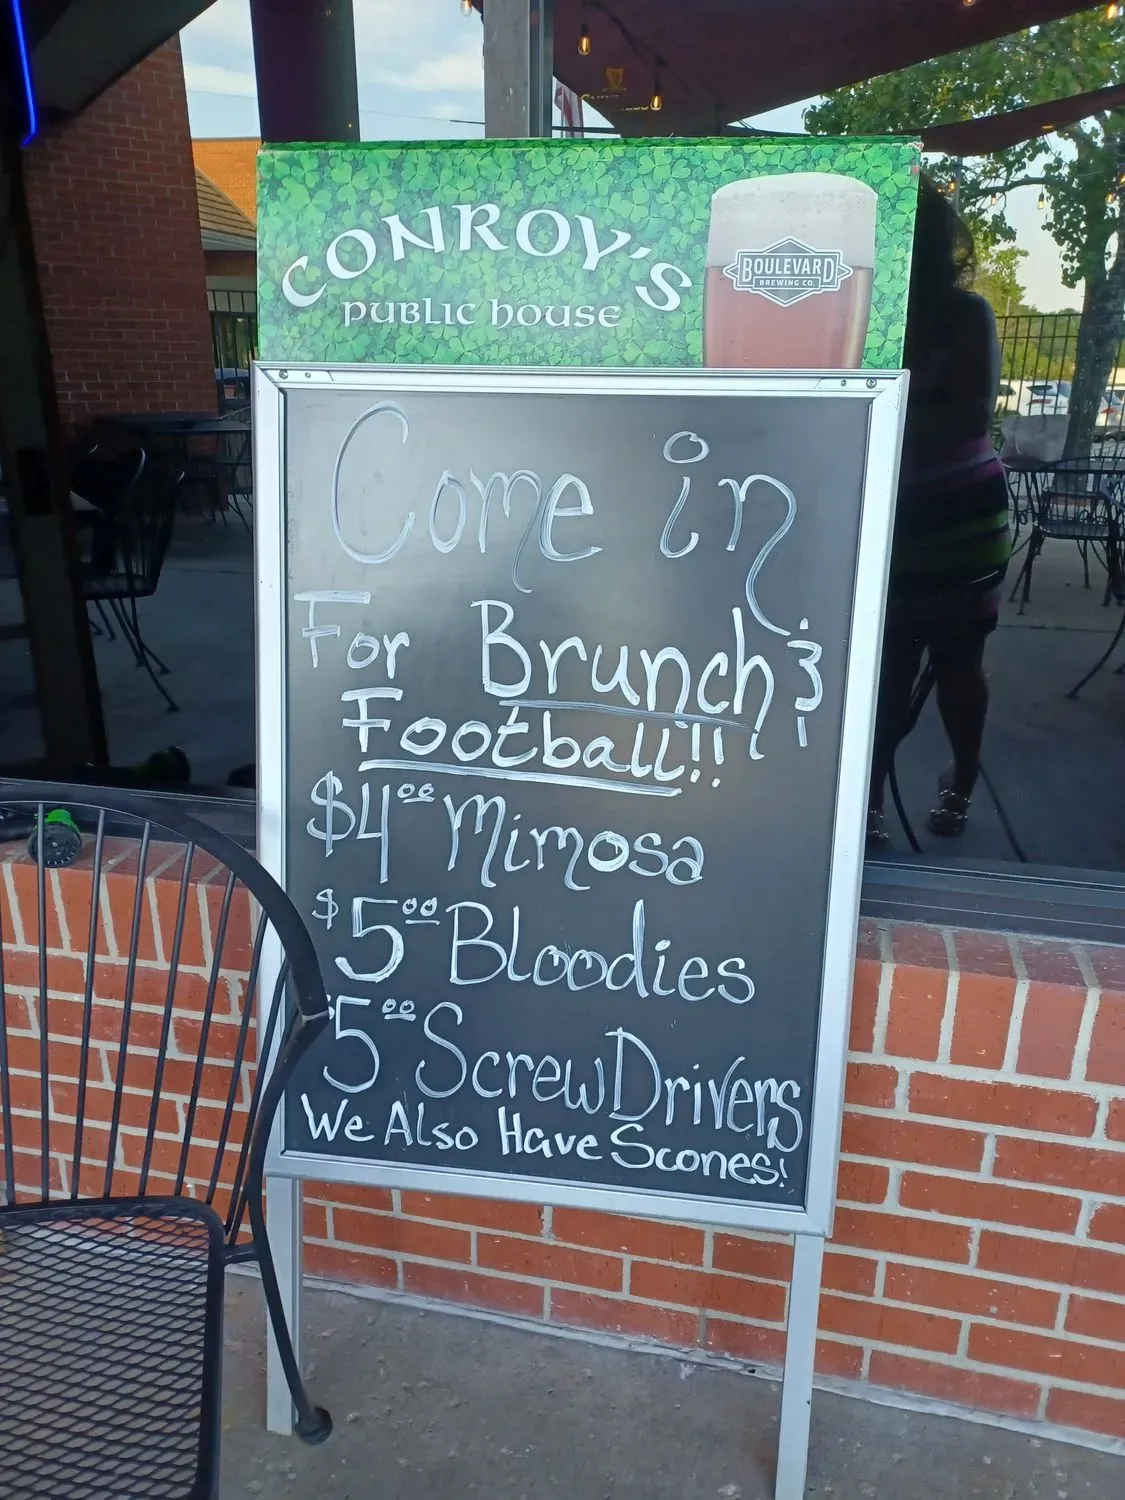 CONROY'S
PUBLIC HOUSE
BOULEVARD
BREWING CO.
Come in
For Brunch &
Football!!
$4.00 Mimosa
$5.00 Bloodies
$5.00 ScrewDrivers
We Also Have Scones!